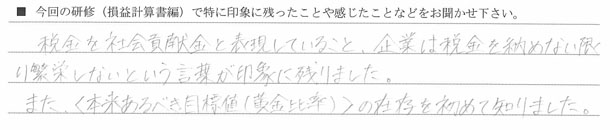 ■ 今回の研修（損益計算書編）で特に印象に残ったことや感じたことなどをお聞かせ下さい。
税金を社会貢献金と表現していること、企業は税金を納めない限
り繁栄しないという言葉が印象に残りました。
また、〈本来あるべき目標値（黄金比率）〉の存在を初めて知りました。